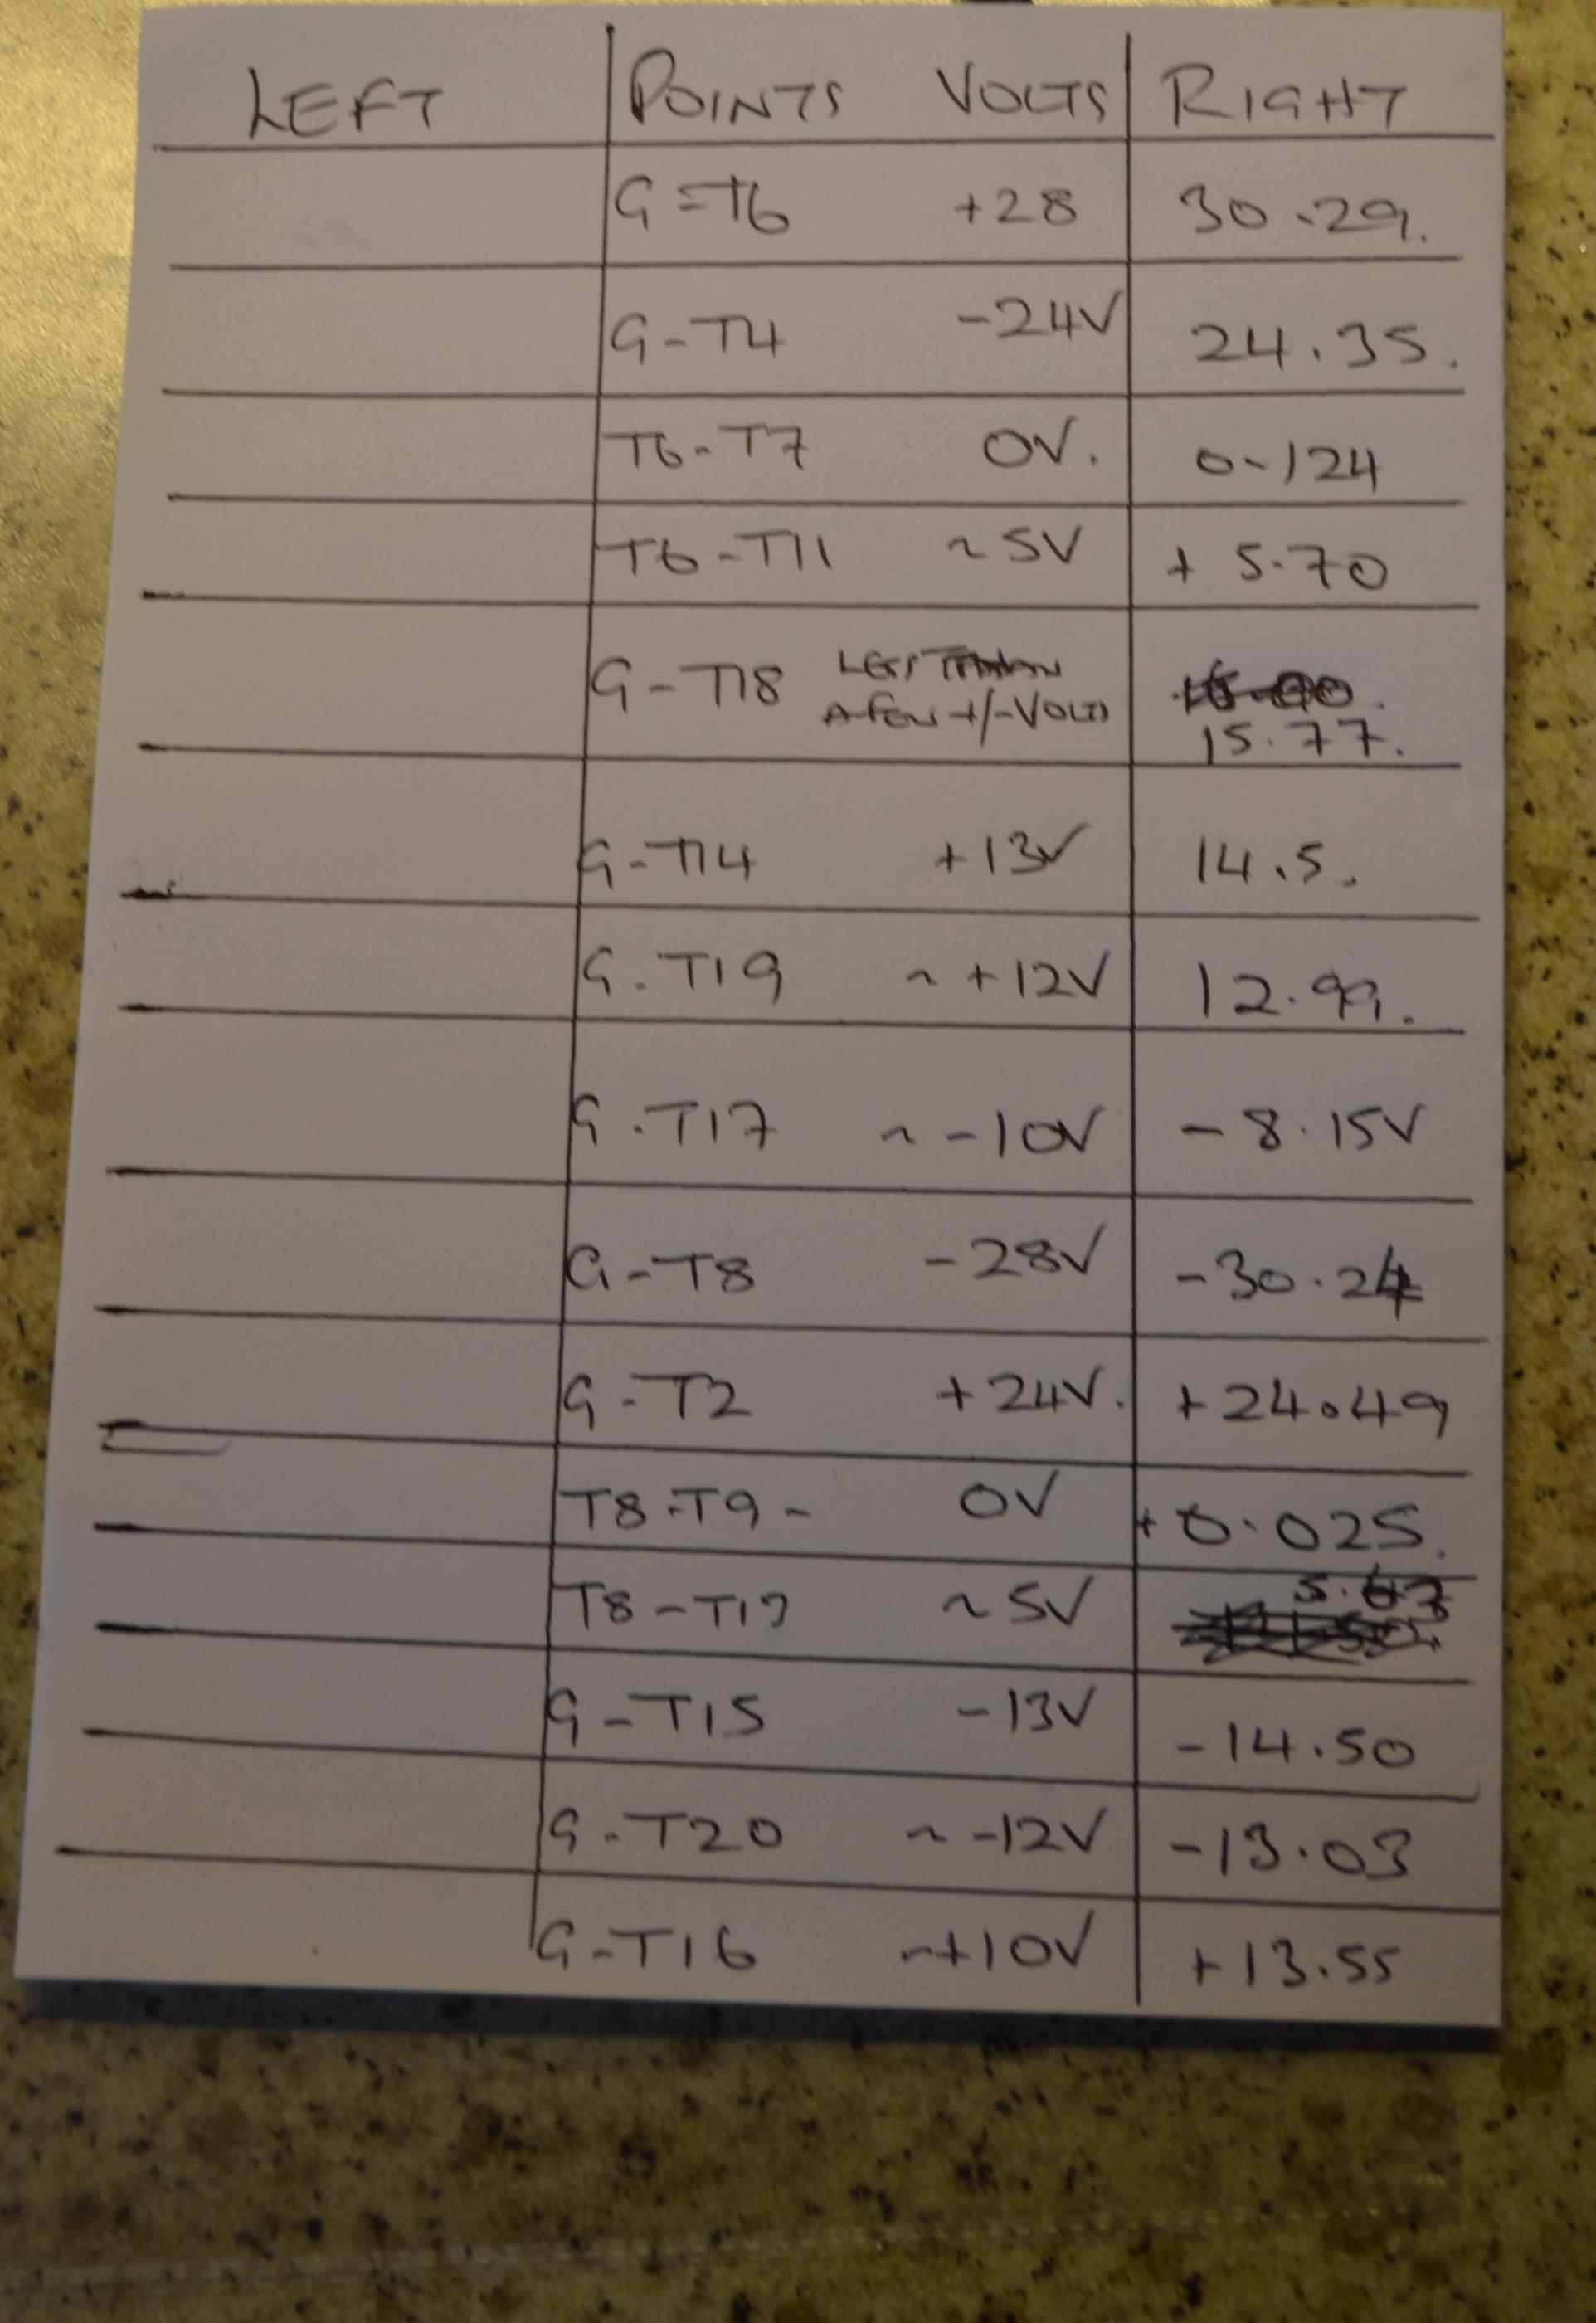 LEFT POINTS VOLTS RIGHT
G=T6 +28 30.29.
G-T4 -24V 24.35.
T6-T7 0V. 0-124
T6-T11 ~5V + 5.70
G-T18 LESS THAN
A FEW +/-VOLTS 15.77.
G-T14 +13V 14.5.
G.T19 ~+12V 12.99.
G.T17 ~-10V -8.15V
G-T8 -28V -30.24
G-T2 +24V. +24.49
T8-T9- 0V +0.025.
~5V 5.63
T8-
G-T15 -13V -14.50
G-T20 ~-12V -13.03
G-T16 ~+10V +13.55